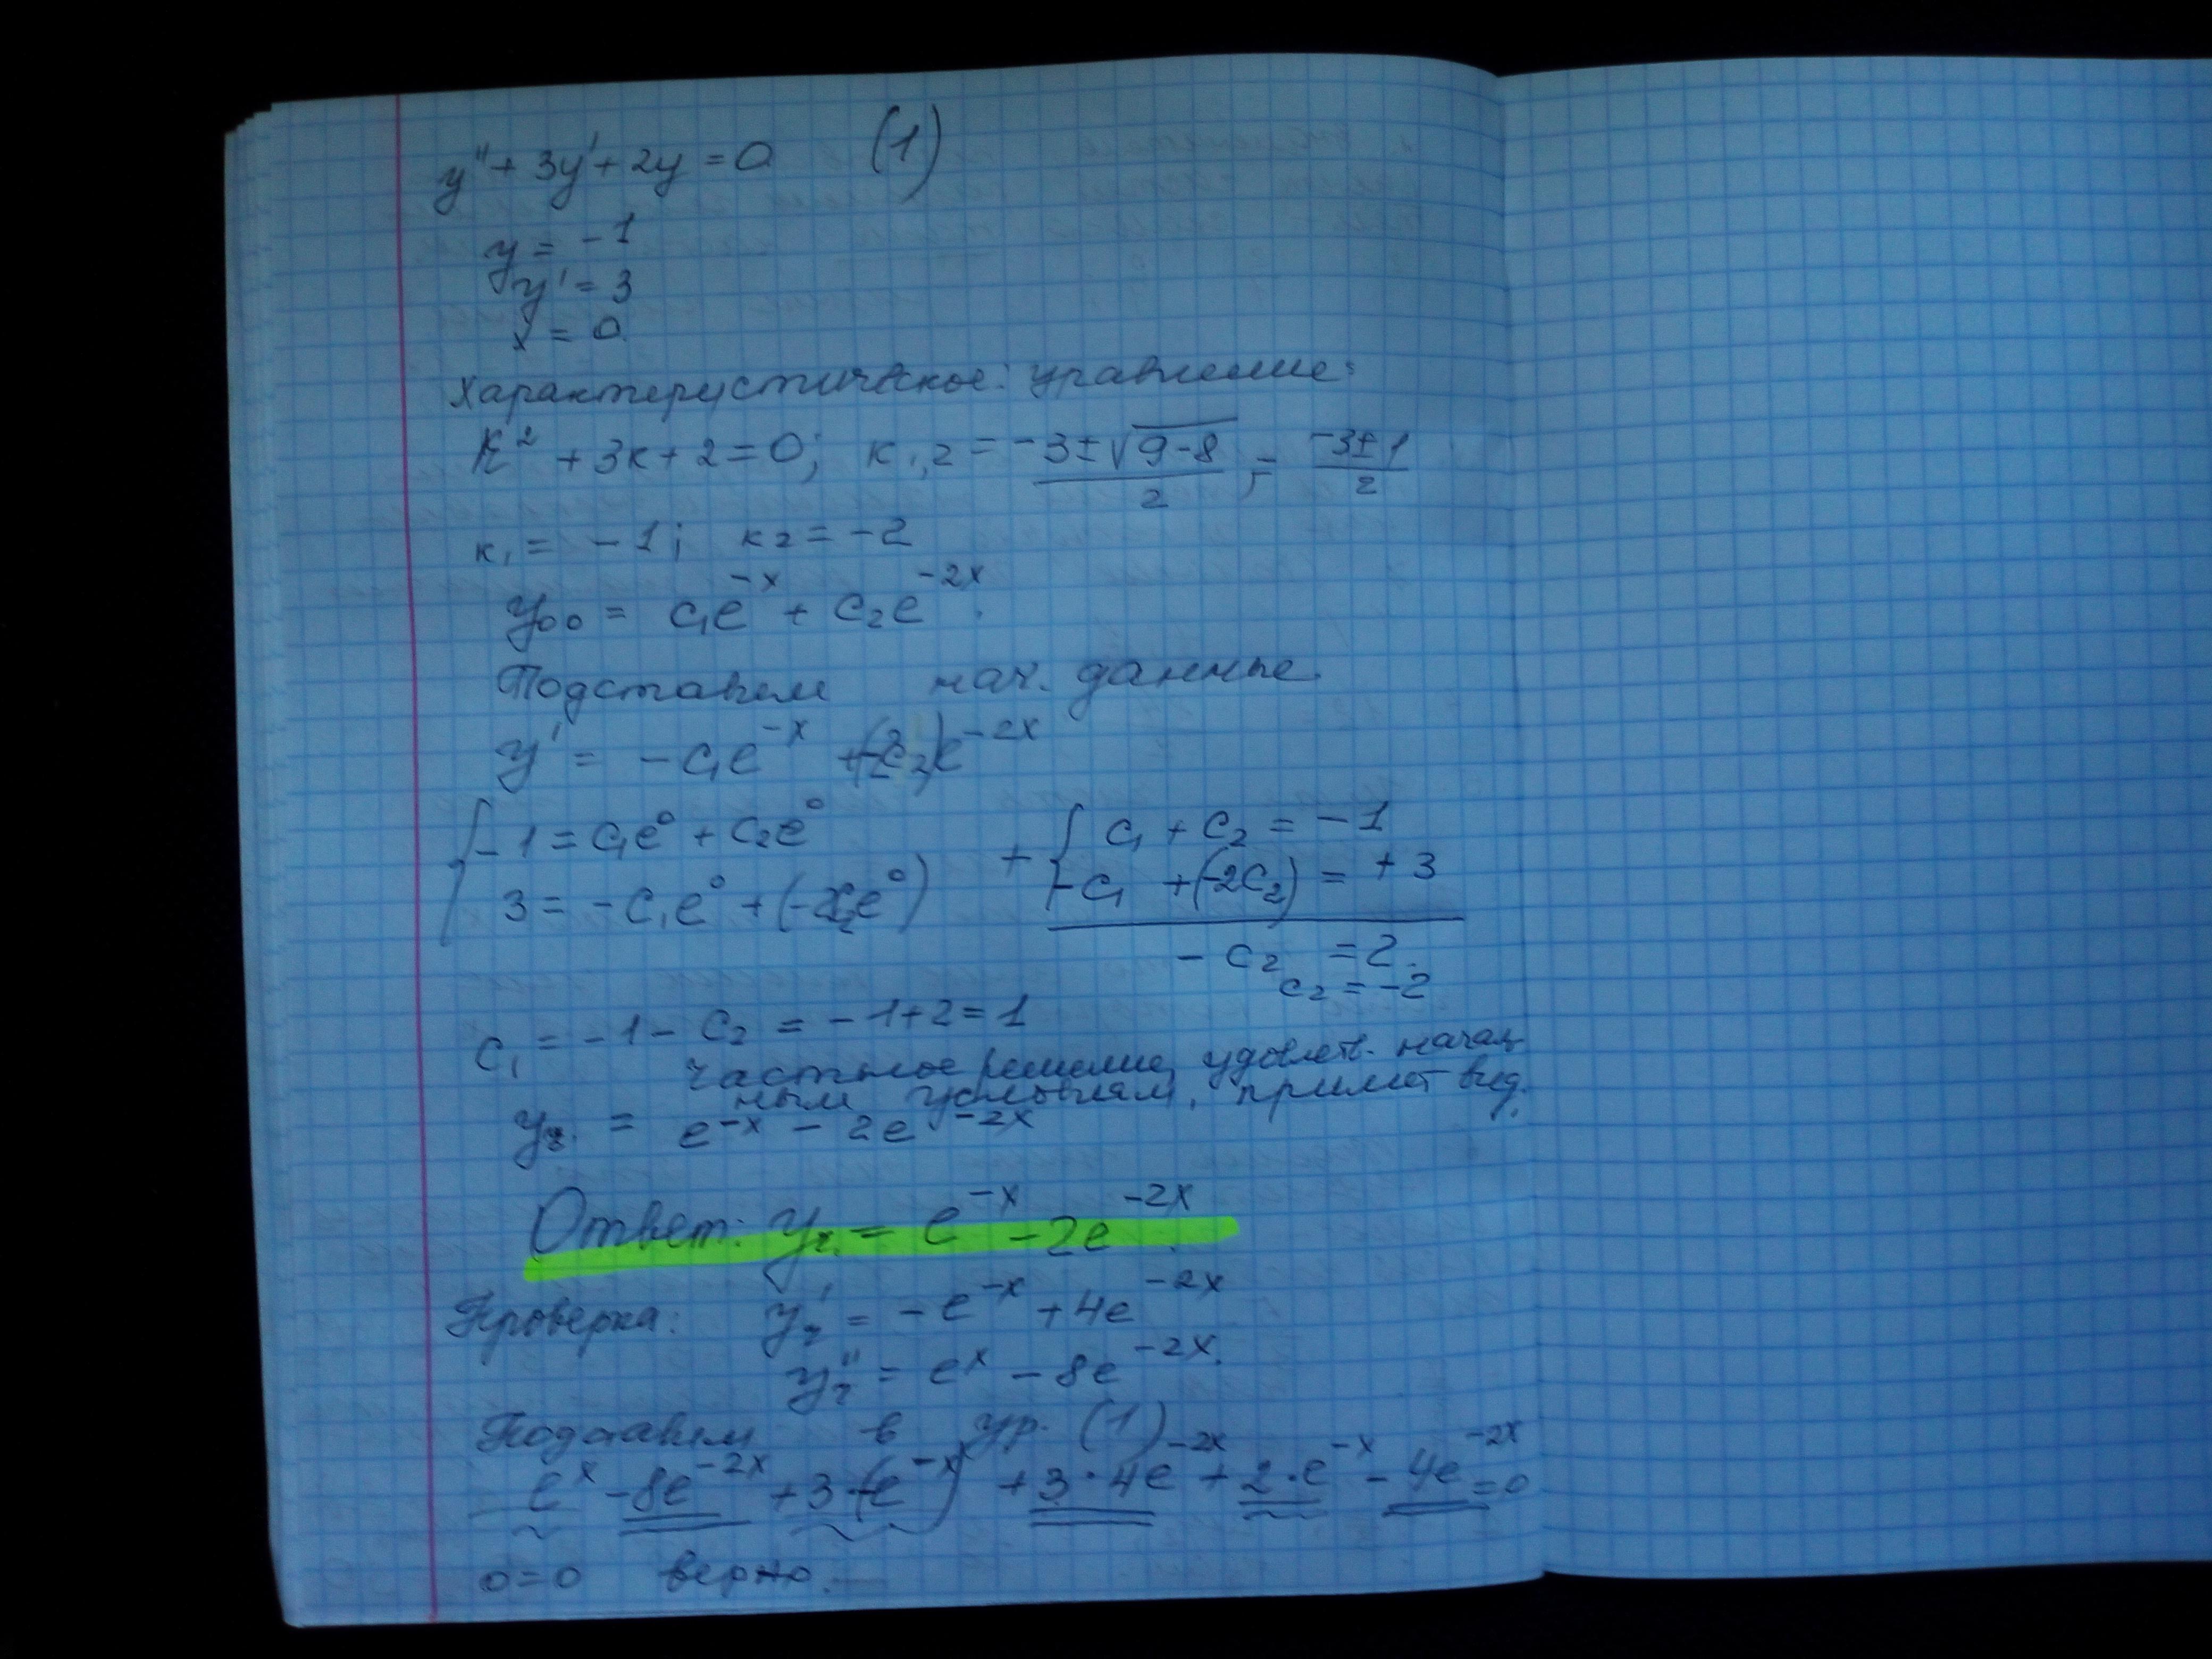 y'' + 3y' + 2y = 0 (1)
y = -1
y' = 3
x = 0
Характеристическое: уравнение:
k² + 3k + 2 = 0; k₁,₂ = (-3 ± √(9-8))/2 = (-3 ± 1)/2
k₁ = -1; k₂ = -2
y₀₀ = c₁e^(-x) + c₂e^(-2x).
Подставим нач. данные.
y' = -c₁e^(-x) + (-2c₂)e^(-2x)
{ -1 = c₁e⁰ + c₂e⁰
3 = -c₁e⁰ + (-2c₂e⁰)
+ { c₁ + c₂ = -1
-c₁ + (-2c₂) = +3
-c₂ = 2.
c₂ = -2
c₁ = -1 - c₂ = -1+2 = 1
Частное решение, удовлетв. началь
ным условиям, примет вид.
yч. = e^(-x) - 2e^(-2x)
Ответ: yч. = e^(-x) - 2e^(-2x).
Проверка: yч' = -e^(-x) + 4e^(-2x)
yч'' = e^x - 8e^(-2x).
Подставим в ур. (1)
e^x - 8e^(-2x) + 3·(-e^(-x)) + 3·4e^(-2x) + 2·e^(-x) - 4e^(-2x) = 0
0=0 верно.